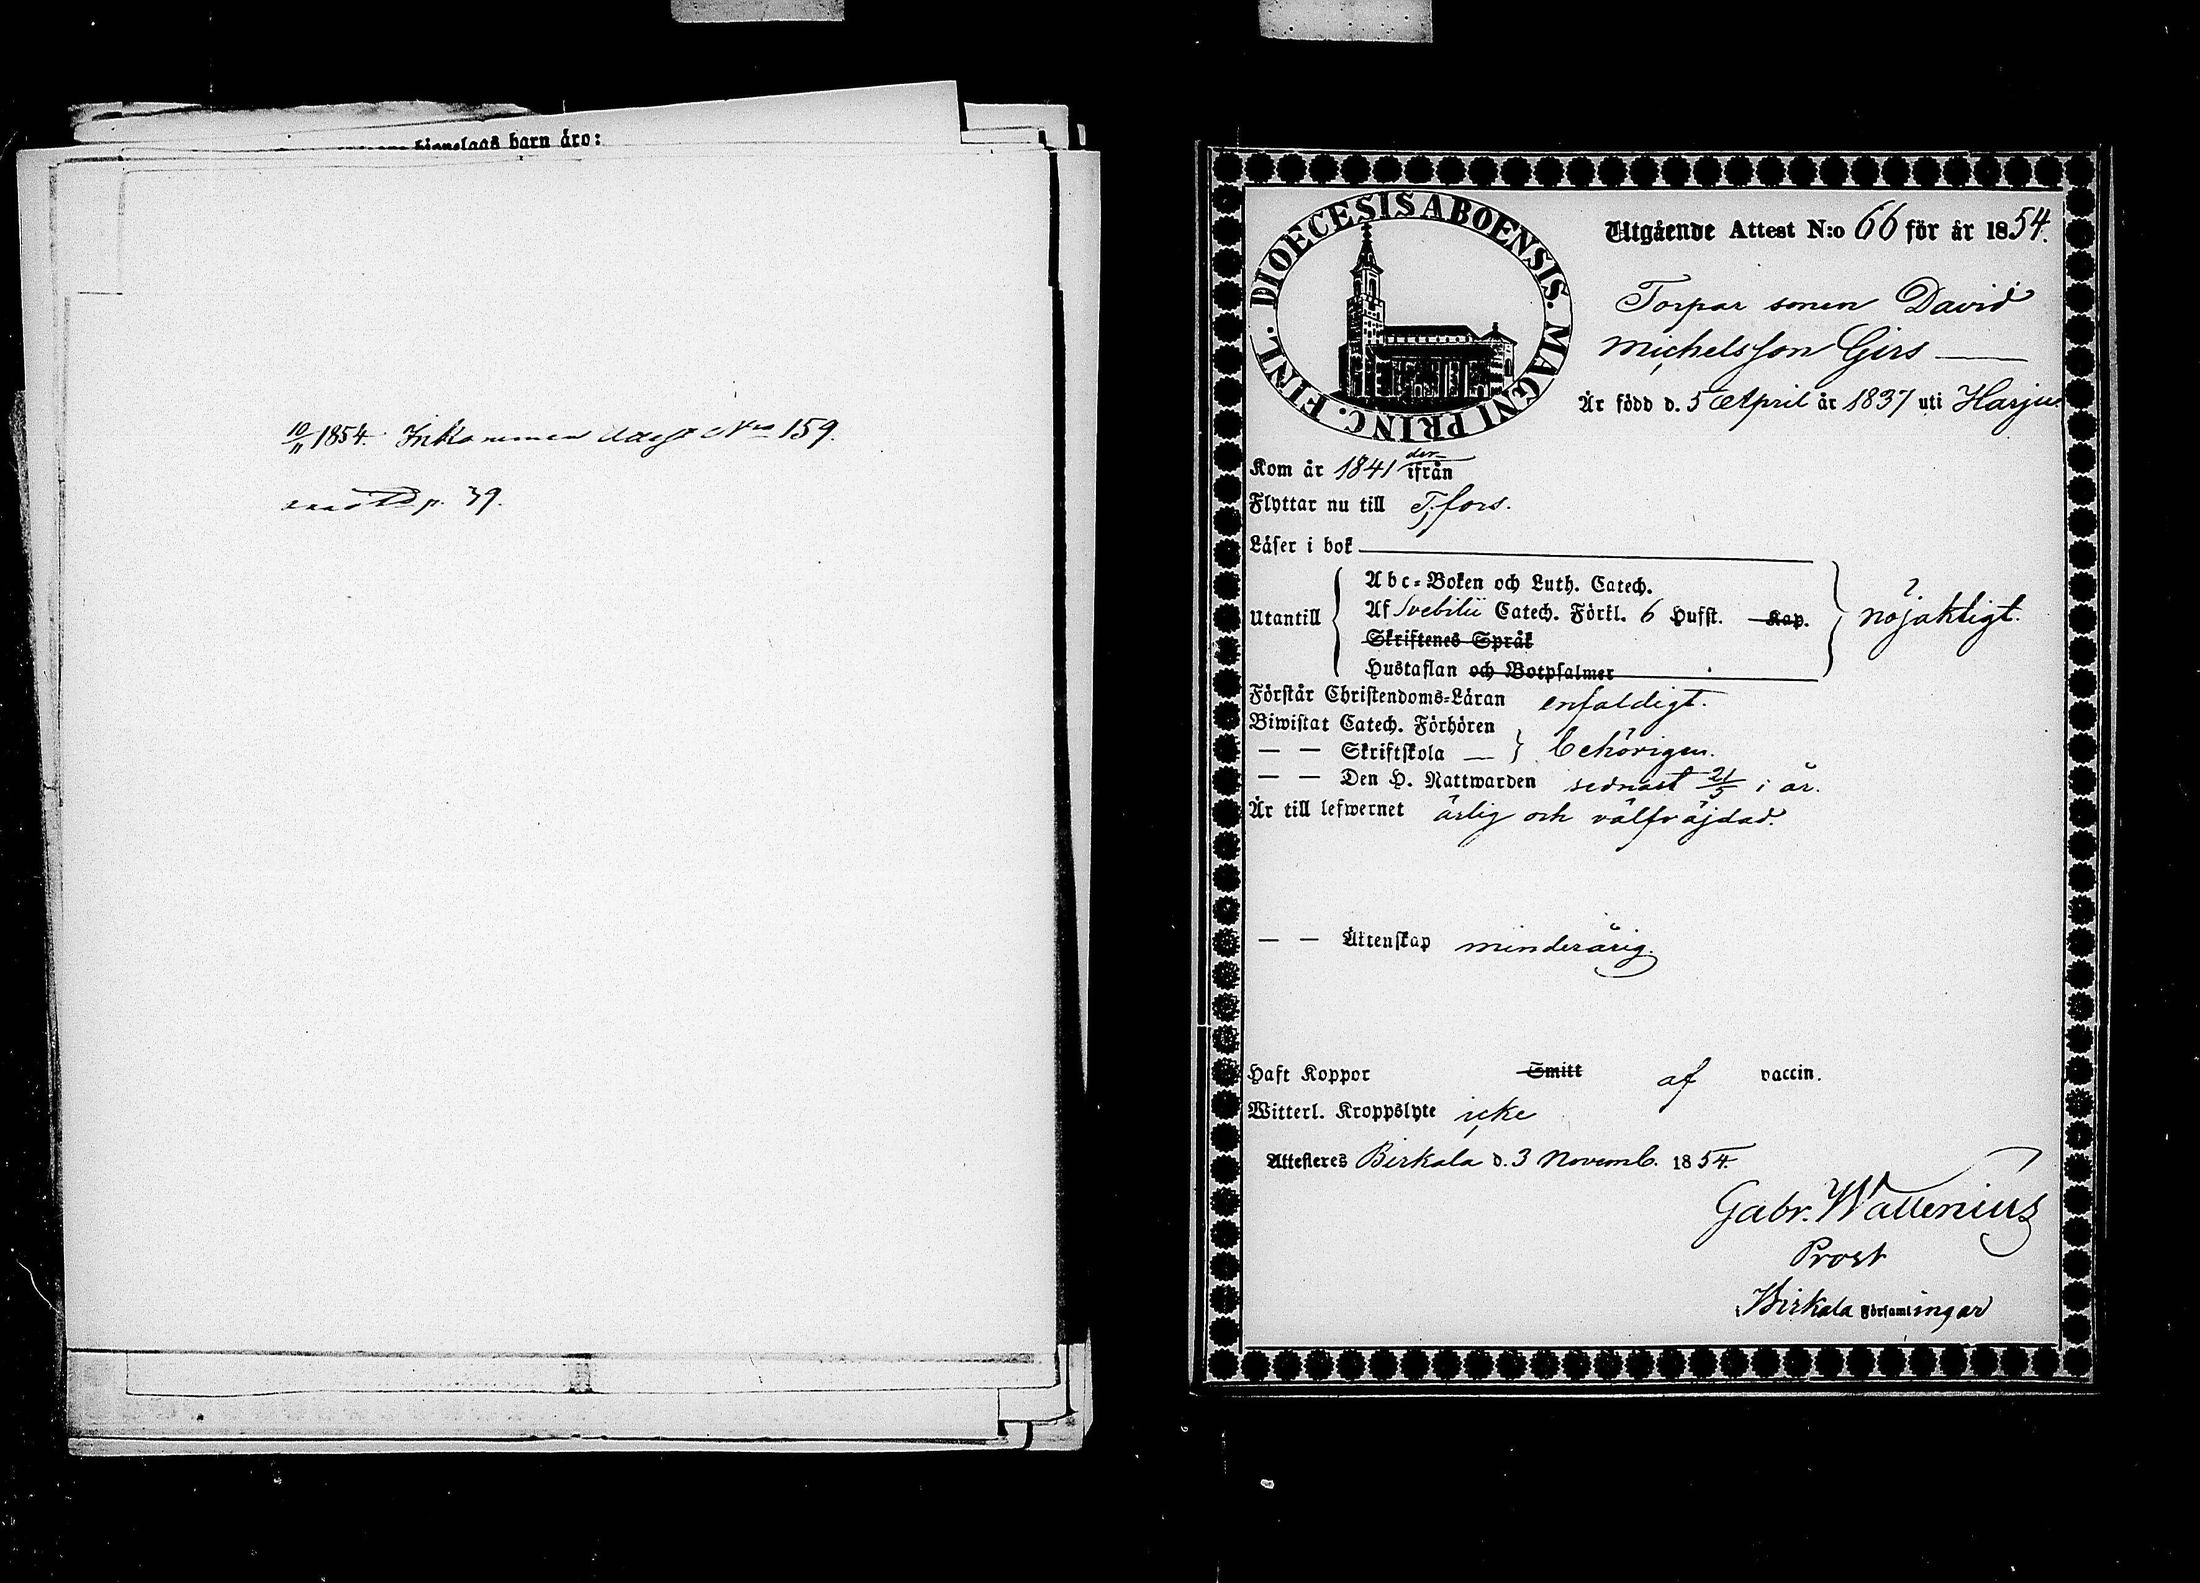 hionelags barn äro:
10/11 1854. Inkommen Attest No 159.
p. 39.
DIOECESIS ABOENSIS. MAGNI PRINC. FINL.
Utgående Attest N:o 66 för år 1854.
Torpar sonen David
Michelsson Girs
Är född d. 5 April år 1837 uti Harju
Kom år 1841 der ifrån
Flyttar nu till T:fors.
Läser i bok
Utantill
Abc-Boken och Luth. Catech.
Af Svebilii Catech. Förkl. 6 Hufst. Kap.
Skriftenes Språk
Hustaflan och Botpsalmer
nöjaktigt.
Förstår Christendoms-Läran enfaldigt.
Biwistat Catech. Förhören
— — Skriftskola — behörigen.
— — Den H. Nattwarden sednast 21/5 i år.
Är till lefwernet ärlig och välfräjdad.
— — Äktenskap minderårig.
Haft Koppor Smitt af vaccin.
Witterl. Kroppslyte icke
Attesteres Birkala d. 3 Novemb. 1854.
Gabr. Wallenius
Prost
i Birkala Församlingar